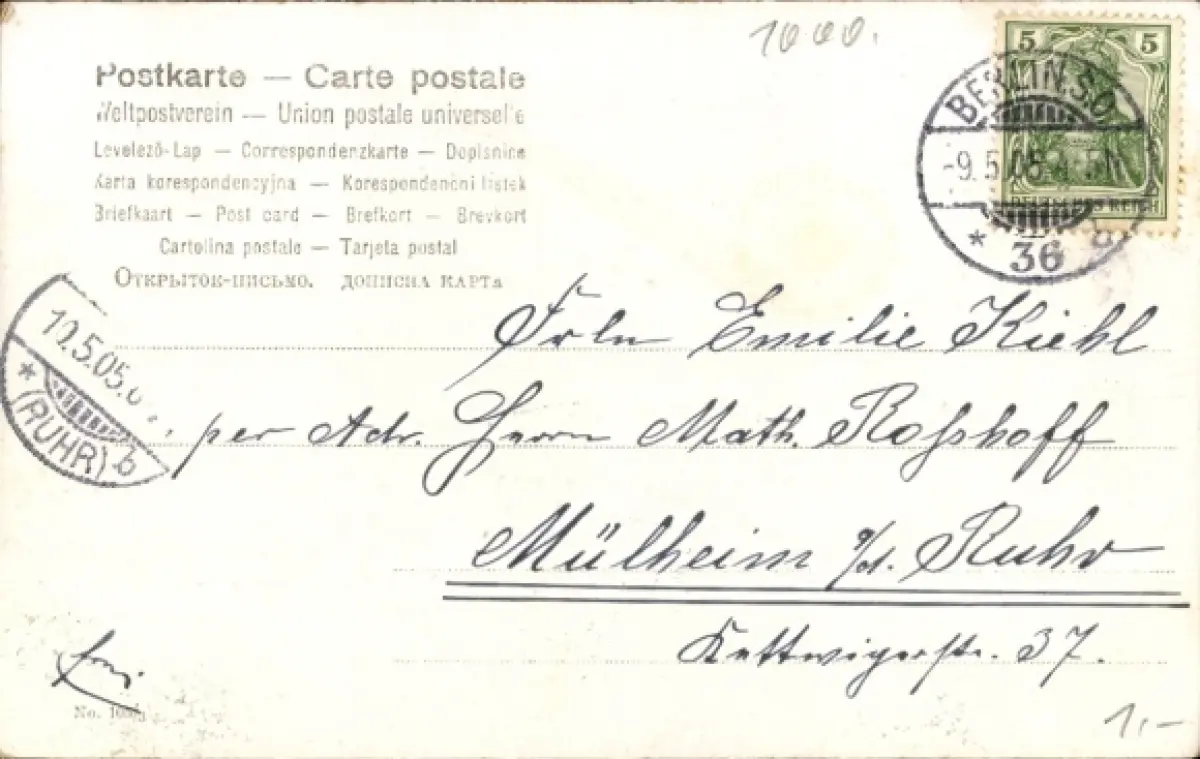 1000.
5 5
BERLIN S.O.
-9.5.05
DEUTSCHES REICH
* 36 a
Postkarte — Carte postale
Weltpostverein — Union postale universelle
Levelező-Lap — Correspondenzkarte — Dopisnice
Karta korespondencyjna — Korespondenční lístek
Briefkaart — Post card — Brefkort — Brevkort
Cartolina postale — Tarjeta postal
Открыток-письмо. дописна карта
10.5.05.
* (RUHR) b
Frln Emilie Kiehl
per Adr. Herrn Math. Roßhoff
Mülheim a/d. Ruhr
Kettwigerstr. 37.
No.
1.-